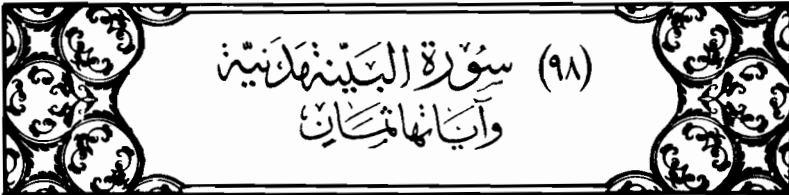 (٩٨) سُوۡرَة البَيّنَة مَدَنيّة
وَآيَاتها ثمَانِ